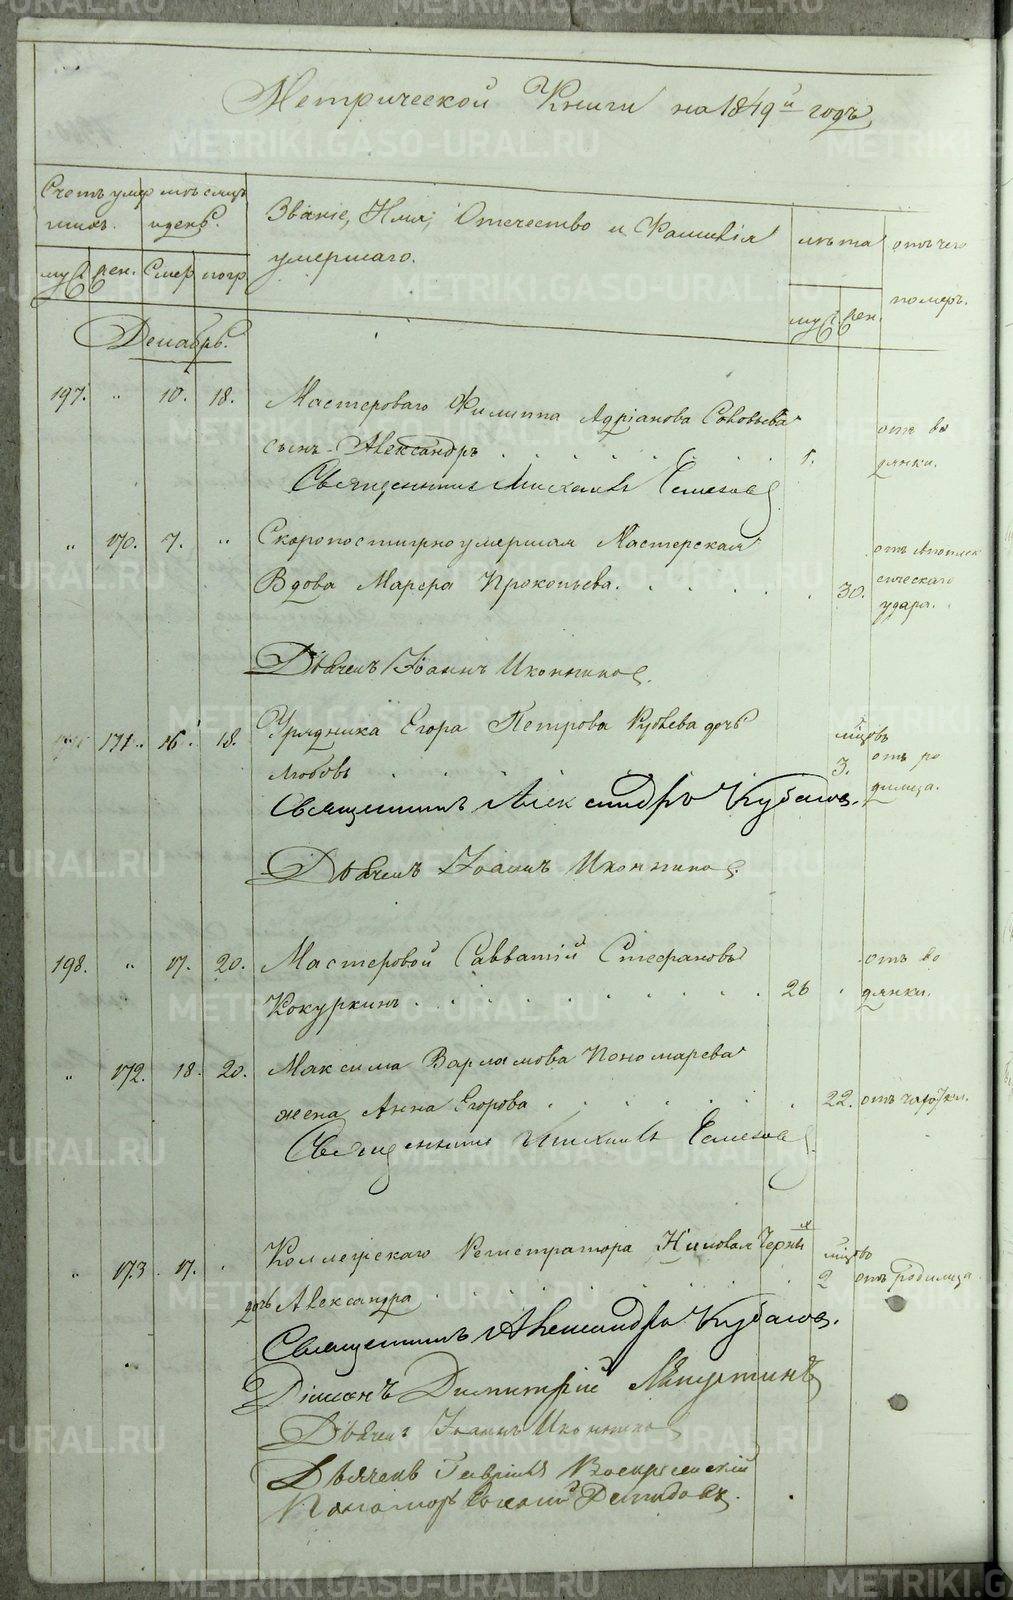 Метрической Книги на 1849й годъ
Счетъ умершихъ. мѣсяцъ и день. Званіе, Имя, Отечество и Фамилія умершаго. лѣта отъ чего померъ.
муж. жен. Смер. погр. муж. жен.
Декабрь.
197. " 10. 18. Мастероваго Филиппа Адріанова Соловьева
сынъ Александръ 1. отъ водянки.
Священникъ Михаилъ
" 170. 7. " Скоропостижно умершая Мастерская
Вдова Марѳа Прокопьева. 30. отъ Апоплексическаго удара.
Дьячекъ Іоаннъ Иконниковъ.
171. 16. 18. Урядника Егора Петрова дочь
Любовь мѣсцовъ 3. отъ родимца.
Священникъ Александръ
Дьячекъ Іоаннъ Иконниковъ.
198. " 17. 20. Мастеровой Савватій Стефановъ
Кокуркинъ 26 отъ водянки.
" 172. 18. 20. Максима Варламова Пономарева
жена Анна Егорова 22. отъ чахотки.
Священникъ Михаилъ
" 173. 17. Коллежскаго Регистратора
дочь Александра мѣсцовъ 2 отъ родимца
Священникъ Александръ
Діаконъ Димитрій
Дьячекъ Іоаннъ Иконниковъ
Дьячекъ Гавріилъ Воскресенскій
Пономарь Демидовъ.
METRIKI.GASO-URAL.RU